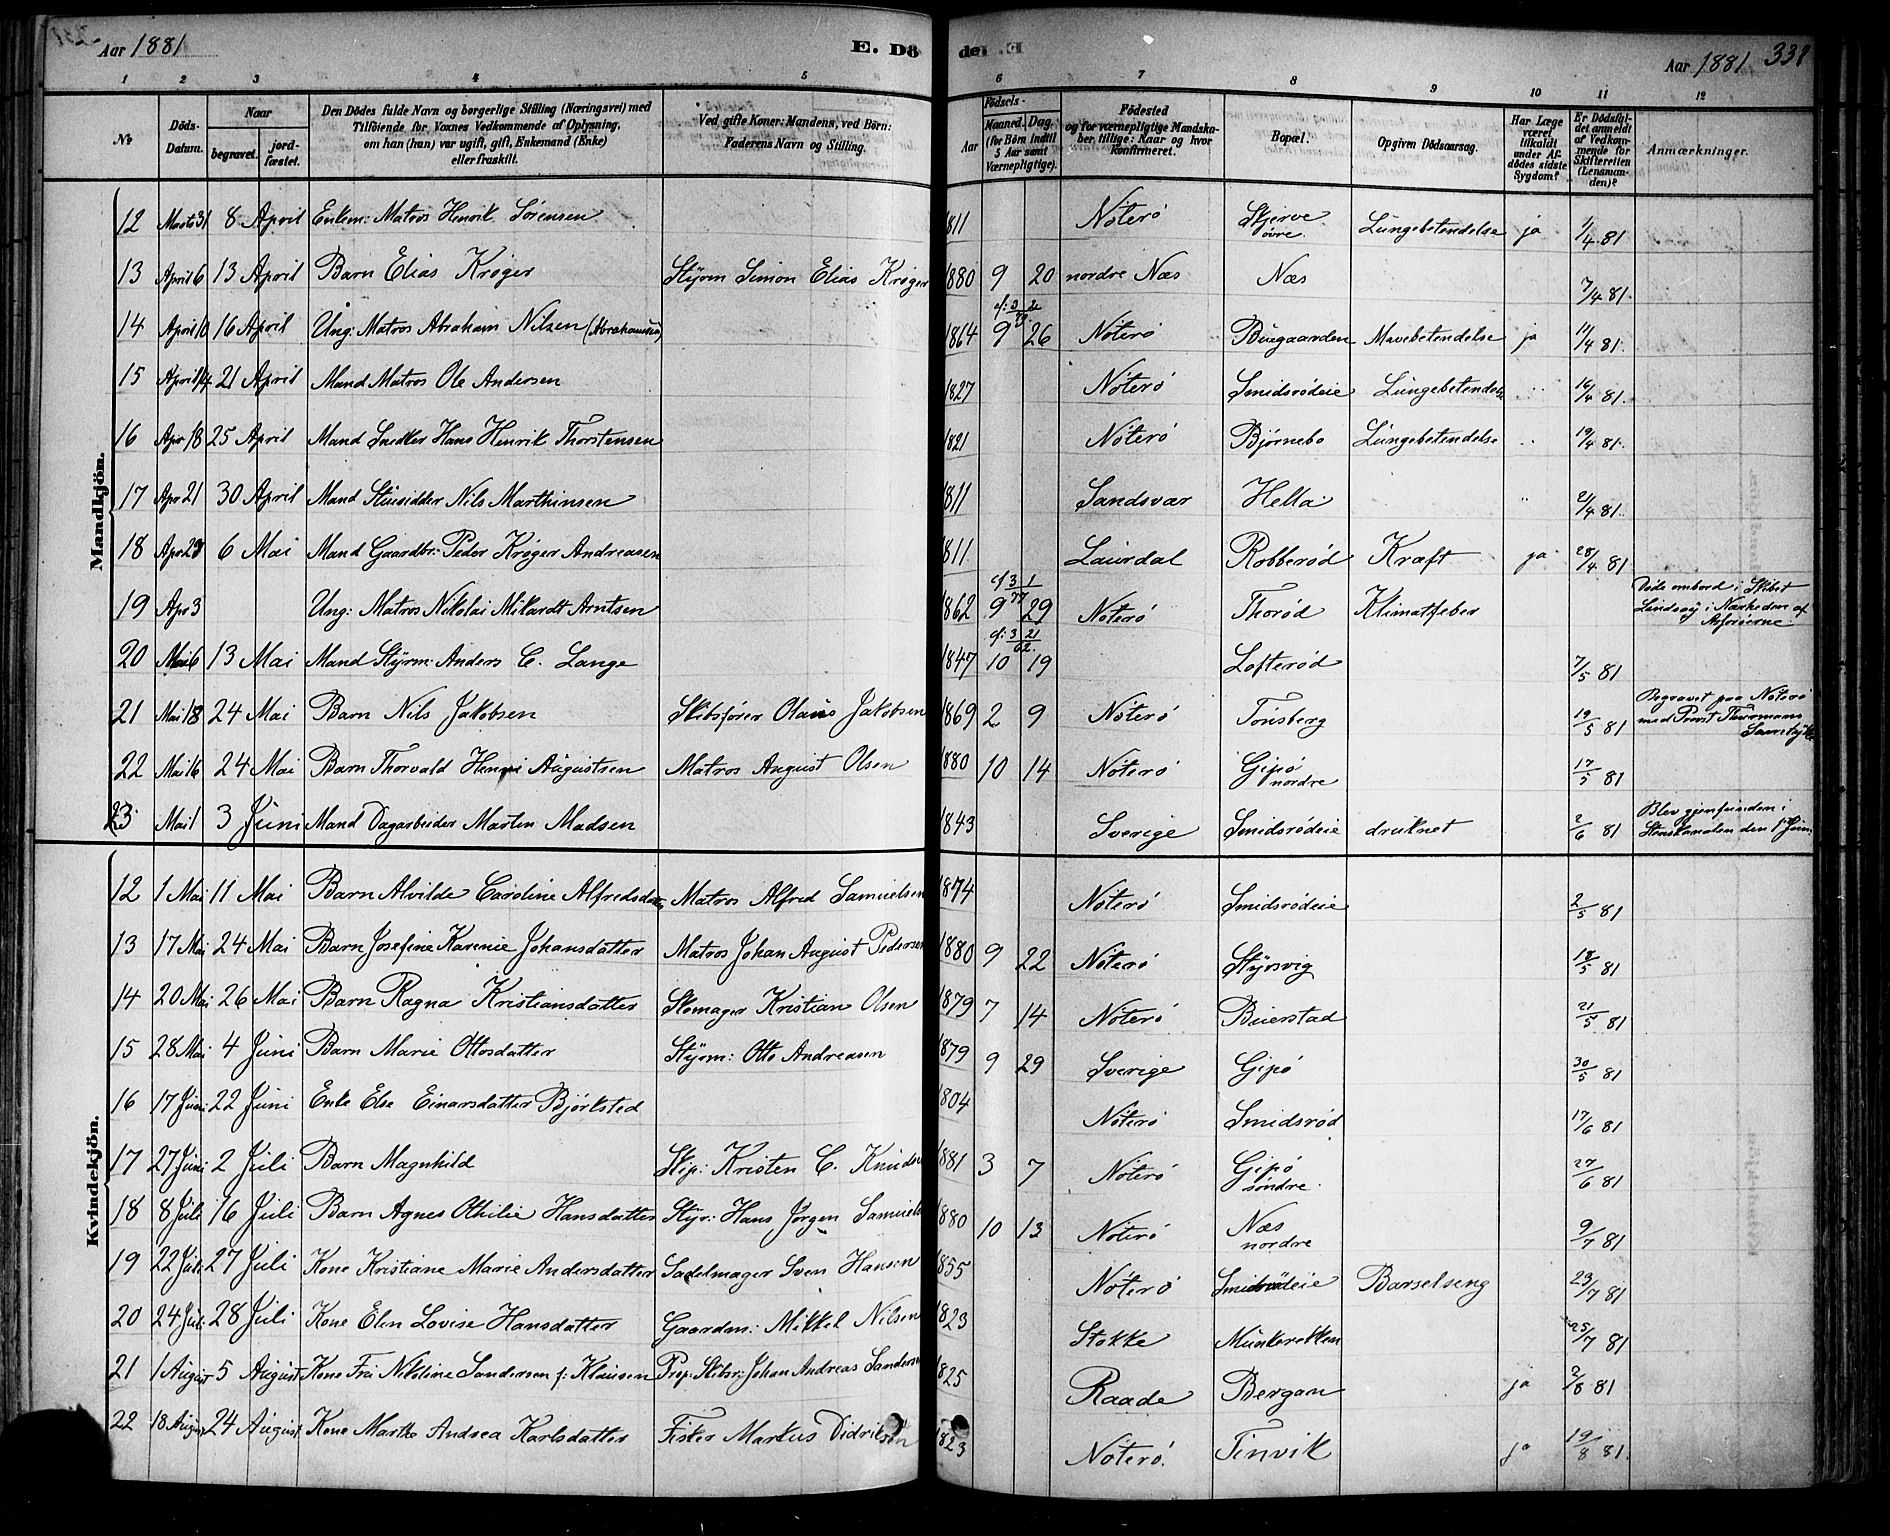 Aar 1881 E. Dö
de. Aar 1881 331
1 2 3 4 5 6 7 8 9 10 11 12
№ Döds-Datum. Naar begravet. jordfæstet. Den Dödes fulde Navn og borgerlige Stilling (Næringsvei) med Tilföiende for Voxnes Vedkommende af Oplysning, om han (hun) var ugift, gift, Enkemand (Enke) eller fraskilt. Ved gifte Koner: Mandens, ved Börn: Faderens Navn og Stilling. Aar Födsels- Maaned. Dag. (for Börn indtil 5 Aar samt Værnepligtige). Födested og for værnepligtige Mandskaber tillige: Naar og hvor konfirmeret. Bopæl. Opgiven Dödsaarsag. Har Læge været tilkaldt under Afdödes sidste Sygdom? Er Dödsfaldet anmeldt af Vedkommende for Skifteretten (Lensmanden)? Anmærkninger.
Mandkjön.
12 Marts 31 8 April Enkem: Matros Henrik Sörensen 1811 Nöterö Skjerve övre. Lungebetendelse ja 1/4 81
13 April 6 13 April Barn Elias Kröger Styrm Simon Elias Kröger 1880 9 20 nordre Næs Næs 7/4 81.
14 April 10 16 April Ung: Matros Abraham Nilsen (Abrahamsen) 1864 9 26 Nöterö Buegaarden Mavebetendelse ja 11/4 81.
15 April 14 21 April Mand Matros Ole Andersen 1827 Nöterö Smidsrödeie Lungebetendelse " 16/4 81.
16 Apr 18 25 April Mand Snedker Hans Henrik Thorstensen 1821 Nöterö Björnebo Lungebetendelse " 19/4 81.
17 Apr 21 30 April Mand Stuesidder Nils Marthinsen 1811 Sandsvær Hella " 21/4 81.
18 Apr 27 6 Mai Mand Gaardbr: Peder Kröger Andreasen 1811. Laurdal Robberöd Kræft ja 28/4 81
19 Apr 3 Ung: Matros Nikolai Mikardt Arntsen 1862 cf: 3 1/77 9 29 Nöterö Thoröd Klimatfeber Döde ombord i Skibet Lindsay i Nærheden af Asorerne.
20 Mai 6 13 Mai Mand Styrm: Anders C. Lange 1847 cf: 3 21/62. 10 19 Lofteröd 7/5 81
21 Mai 18 24 Mai Barn Nils Jakobsen Skibsförer Olaus Jakobsen 1869 2 9 Nöterö Tönsberg 19/5 81 Begravet paa Nöterö med Provst Thurmanns Samtykke
22 Mai 16 24 Mai Barn Thorvald Henri Augustsen Matros August Olsen 1880 10 14 Nöterö Gipö nordre 17/5 81
23 Mai 1 3 Juni Mand Dagarbeider Martin Madsen 1843 Sverige Smidsrödeie druknet 2/6 81 Blev gjenfunden i Stenskanalen den 1 Juni.
Kvindekjön.
12 1 Mai 11 Mai Barn Alvilde Caroline Alfredsdatter Matros Alfred Samuelsen 1874 Nöterö Smidsrödeie 2/5 81
13 17 Mai 24 Mai Barn Josefine Karenie Johansdatter Matros Johan August Pedersen 1880 9 22 Nöterö Styrsvig 18/5 81
14 20 Mai 26 Mai Barn Ragna Kristiansdatter Skomager Kristian Olsen 1879 7 14 Nöterö Buerstad 21/5 81
15 28 Mai 4 Juni Barn Marie Ottosdatter Styrm: Otto Andreasen 1879 9 29 Sverige Gipö 30/5 81
16 17 Juni 22 Juni Enke Else Einarsdatter Björksted 1804 Nöterö Smidsröd 17/6 81
17 27 Juni 2 Juli Barn Magnhild Skip: Kristen C. Knudsen 1881 3 7 Nöterö Gipö söndre. 27/6 81
18 8 Juli 16 Juli Barn Agnes Othilie Hansdatter Styr: Hans Jörgen Samuels 1880 10 13 Nöterö Næs nordre 9/7 81
19 22 Juli 27 Juli Kone Kristiane Marie Andersdatter Sadelmager Sven Hansen 1855 Nöterö Smidsrödeie Barselseng 23/7 81
20 24 Juli 28 Juli Kone Elen Lovise Hansdatter Gaardm: Mikkel Nilsen 1823 Stokke Munkerekken 25/7 81
21 1 August 5 August Kone Fru Nikoline Sandersen f: Klausen Prop: Skibsr: Johan Andreas Sandersen 1825 Raade Bergan ja 2/8 81
22 18 August 24 August Kone Marthe Andrea Karlsdatter Fisker Markus Didriksen 1823 Nöterö. Tinvik ja 19/8 81.